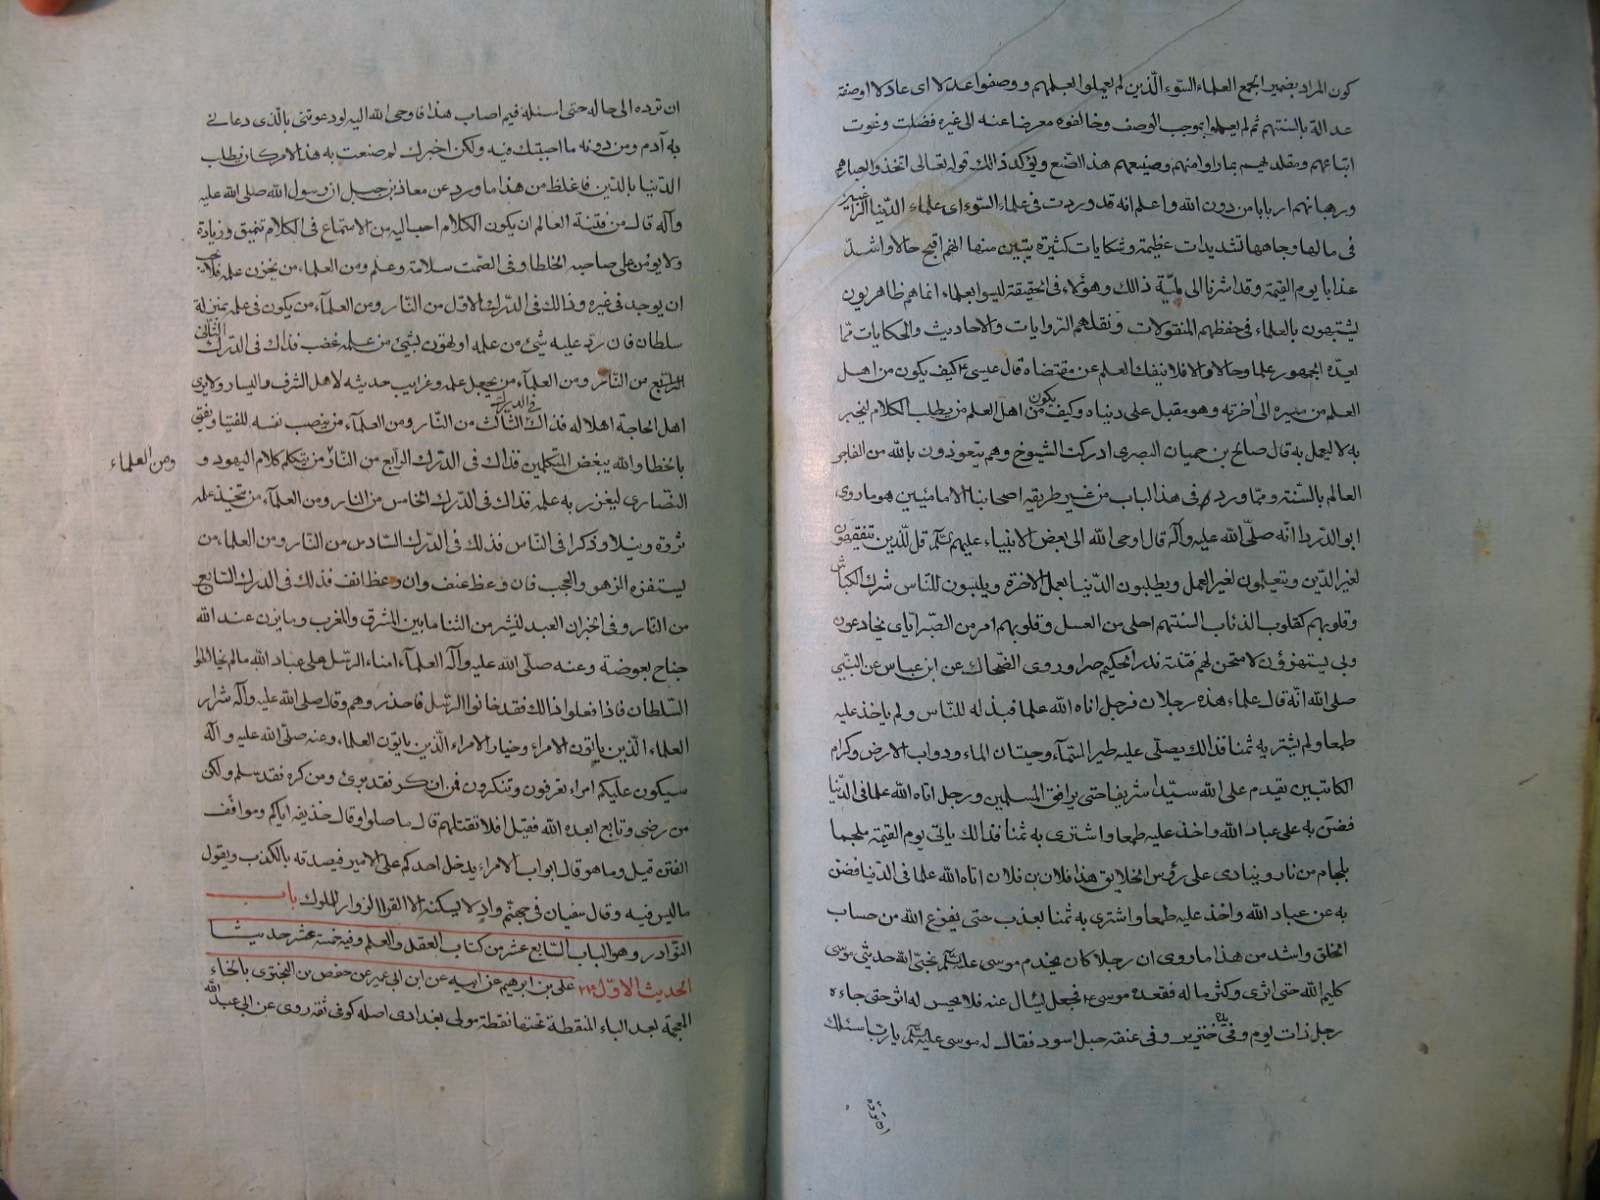 كون المراد بضمير الجمع العلماء السّوء الّذين لم يعملوا بعلمهم ووصفوا عدلا اى عادلا او صفة
عدالة بالسنتهم ثم لم يعملوا بموجب الوصف وخالفوه معرضا عنه الى غيره فضلت وغوت
اتباعهم ومقلديهم بما راوا منهم وصنيعهم هذا الصّنع ويؤكد ذلك قوله تعالى اتخذوا احبارهم
ورهبانهم اربابا من دون الله واعلم انه قد وردت فى علماء السّوء اى علماء الدّنيا الراغبين
فى مالها وجاهها تشديدات عظيمة وشكايات كثيرة يتبين منها انهم اقبح حالا واشدّ
عذابا يوم القيمة وقد اشرنا الى لميّة ذلك وهؤلاء فى الحقيقة ليسوا بعلماء انما هم ظاهريون
يشتبهون بالعلماء فى حفظهم المنقولات ونقلهم الرّوايات والاحاديث والحكايات ممّا
يعدّه الجمهور علما وحالا والا فلا ينفك العلم عن مقتضاه قال عيسى ع كيف يكون من اهل
العلم من مسيره الى اخرته وهو مقبل على دنياه وكيف يكون من اهل العلم من يطلب الكلام ليخبر
به لا ليعمل به قال صالح بن حسان البصرى ادركت الشيوخ وهم يتعوذون بالله من الفاجر
العالم بالسّنة وممّا ورد فى هذا الباب من غير طريقه اصحابنا الاماميّين هو ما روى
ابو الدّردا انّه صلّى الله عليه وآله قال اوحى الله الى بعض الانبياء عليهم السّلم قل للّذين يتفقهون
لغير الدّين ويتعلمون لغير العمل ويطلبون الدّنيا بعمل الاخرة ويلبسون للنّاس مسوك الكباش
وقلوبهم كقلوب الذئاب السنتهم احلى من العسل وقلوبهم امر من الصّبر ايّاى يخادعون
وبى يستهزؤن لامتحن لهم فتنة تذر الحكيم حيرا وروى الضّحاك عن ابن عباس عن النبّى
صلى الله انّه قال علماء هذه رجلان فرجل اتاه الله علما فبذله للنّاس ولم ياخذ عليه
طمعا ولم يشتر به ثمنا فذلك يصلّى عليه طير السّماء وحيتان الماء ودواب الارض وكرام
الكاتبين يقدم على الله سيّدا شريفا حتى يرافق المسلمين ورجل اتاه الله علما فى الدّنيا
فضن به على عباد الله واخذ عليه طمعا واشترى به ثمنا فذلك ياتى يوم القيمة ملجما
بلجام من نار وينادى على رؤس الخلايق هذا فلان بن فلان اتاه الله علما فى الدّنيا فضنّ
به عن عباد الله واخذ عليه طمعا واشترى به ثمنا يعذب حتى يفرغ الله من حساب
الخلق واشد من هذا ما روى ان رجلا كان يخدم موسى عليه السّلم فجعل يقول حدثنى موسى نجىّ الله حدثنى موسى
كليم الله حتى اثرى وكثر ماله ففقده موسى ع فجعل يسال عنه فلا يحس له اثر حتى جاءه
رجل ذات يوم وفى يده خنزير وفى عنقه حبل اسود فقال له موسى عليه السّلم يا ربّ اسئلك
ان ترده
ان ترده الى حاله حتى اسئله فيم اصاب هذا فاوحى الله اليه لو دعوتنى بالّذى دعانى
به آدم ومن دونه ما اجبتك فيه ولكن اخبرك لم صنعت به هذا لامر كان يطلب
الدّنيا بالدّين فاغلظ من هذا ما ورد عن معاذ بن جبل ان رسول الله صلى الله عليه
وآله قال من فتنة العالم ان يكون الكلام احب اليه من الاستماع فى الكلام تنميق وزيادة
ولا يومن على صاحبه الخطا وفى الصّمت سلامة وعلم ومن العلماء من يخزن علمه فلا يحب
ان يوجد فى غيره وذلك فى الدّرك الاوّل من النّار ومن العلماء من يكون فى علمه بمنزلة
سلطان فان ردّ عليه شئ من علمه او تهون بشئ من علمه غضب فذاك فى الدّرك الثّانى
من النّار ومن العلماء من يجعل علمه وغرايب حديثه لاهل الشّرف واليسار ولا يرى
اهل الحاجة اهلا له فذاك فى الدرك الثّالث من النّار ومن العلماء من ينصب نفسه للفتيا ويفتى
بالخطا والله يبغض المتكلمين فذاك فى الدّرك الرّابع من النّار من يتكلم كلام اليهود و
ومن العلماء
النّصارى ليغزر به علمه فذاك فى الدّرك الخامس من النار ومن العلماء من يتخذ علمه
ثروة ونيلا وذكرا فى النّاس فذلك فى الدّرك السّادس من النّار ومن العلماء من
يستفزه الزهو والعجب فان وعظ عنف وان وعظ انف فذلك فى الدرك السّابع
من النّار وفى الخبر ان العبد لينشر من الثنا ما بين المشرق والمغرب وما يزن عند الله
جناح بعوضة وعنه صلّى الله عليه وآله العلماء امناء الرّسل على عباد الله ما لم يخالطوا
السّلطان فاذا فعلوا ذلك فقد خانوا الرّسل فاحذروهم وقال صلى الله عليه وآله شرار
العلماء الّذين ياتون الامراء وخيار الامراء الّذين ياتون العلماء وعنه صلّى الله عليه وآله
سيكون عليكم امراء تعرفون وتنكرون فمن انكر فقد برئ ومن كره فقد سلم ولكن
من رضى وتابع ابعده الله فقيل افلا نقتلهم قال ما صلوا وقال حذيفه اياكم ومواقف
الفتن قيل وما هو قال ابواب الامراء يدخل احدكم على الامير فيصدقه بالكذب ويقول
ما ليس فيه وقال سفيان فى جهنّم واد لا يسكنه الا القرا الزوار الملوك باب
النّوادر وهو الباب السّابع عشر من كتاب العقل والعلم وفيه خمسة عشر حديثا
الحديث الاوّل علىّ بن ابرهيم عن ابيه عن ابن ابى عمير عن حفص بن البخترى بالخاء
المعجمة بعد الباء المنقطة تحتها نقطة مولى بغدادى اصله كوفى ثقة روى عن ابى عبد الله